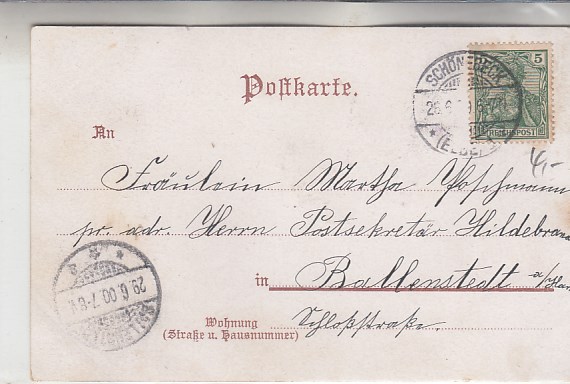 Postkarte.
SCHÖNEBECK
(ELBE)
5
REICHSPOST
4,-
An
Fräulein Martha Poschmann
pr. adr. Herrn Postsekretär Hildebrand
in Ballenstedt a/Harz
Wohnung Schloßstraße.
(Straße u. Hausnummer)
29.6.00.7-8